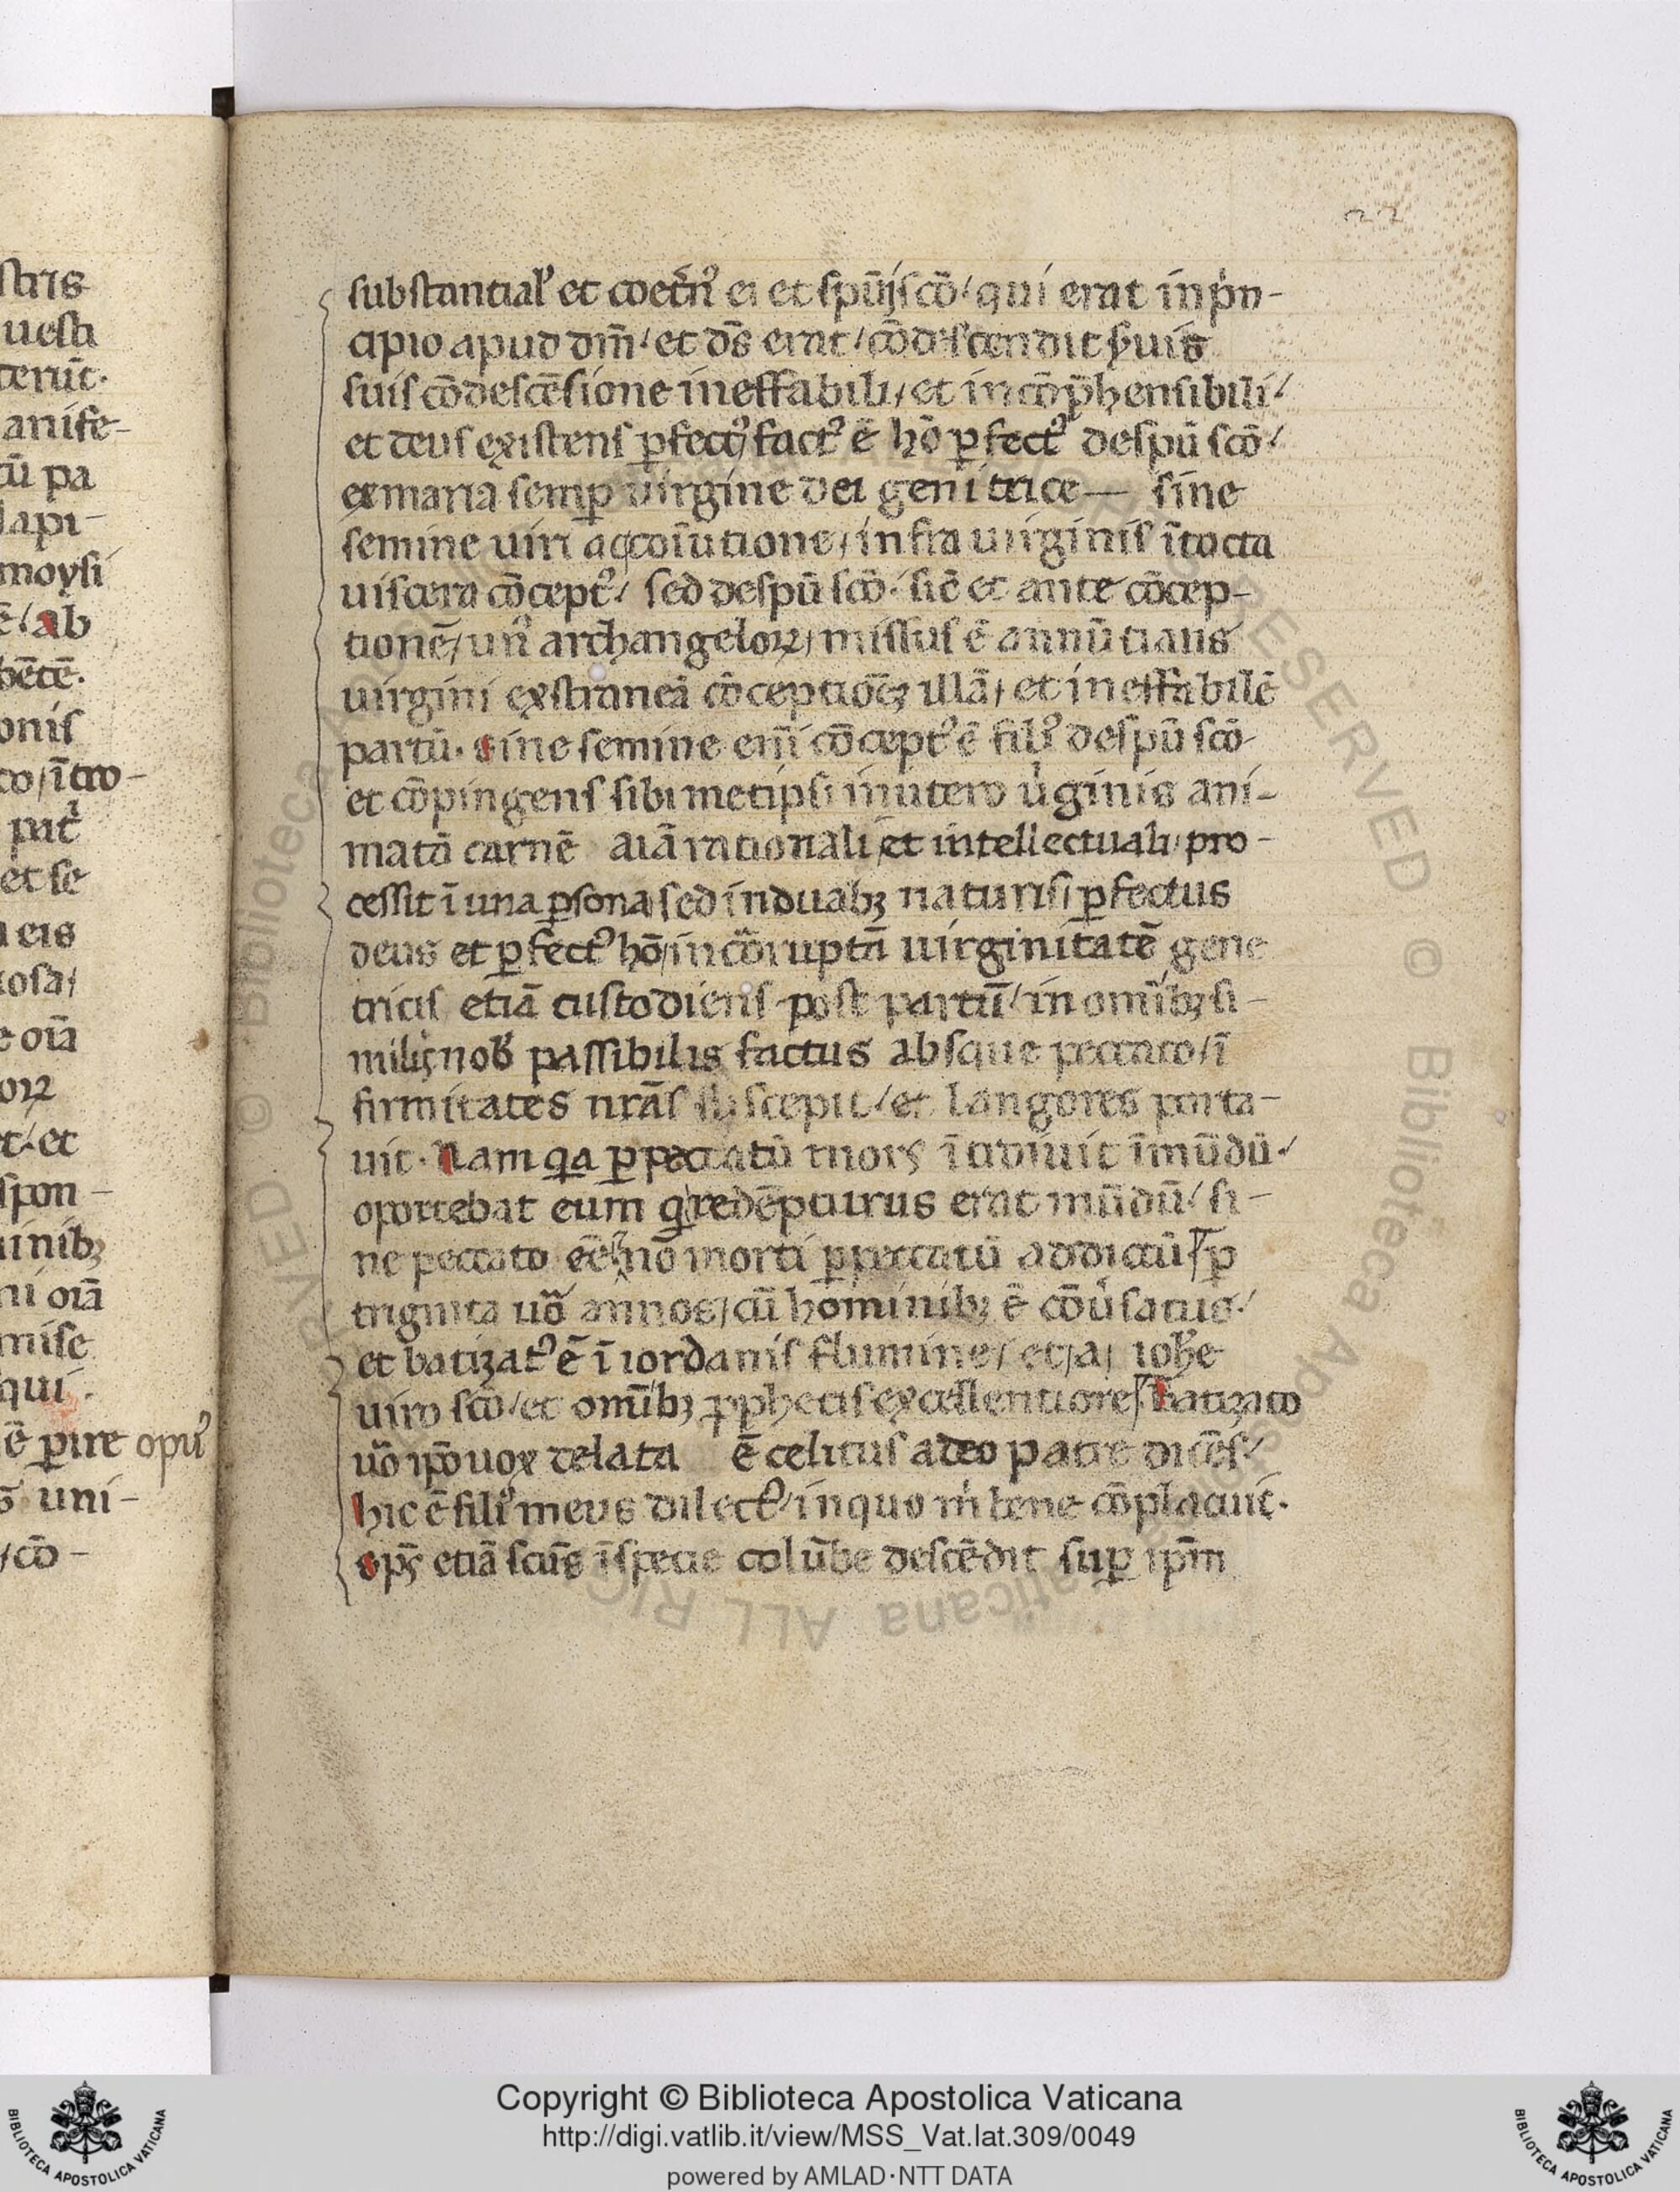 22
substantial᾽ et coet̃n᾽ ei et spũi scõ / qui erat in pͥn-
cipio apud dm̃ / et ds̃ erat / cõdescendit ẜuis
suis cõdescẽsione ineffabili / et incõp̃hensibili /
et deus existens ꝑfect᾽ / fact᾽ ẽ hõ ꝑfect᾽ de spũ scõ /
ex maria semꝑ virgine dei genitrice — sine
semine uiri ac coĩutione / infra uirginis ĩtacta
uiscera cõcept᾽ / sed de spũ scõ · siẽ et ante cõcep-
tionẽ / un᾽ archangeloꝝ / missus ẽ annũtians
uirgini extraneã cõceptiõeꝫ illã / et ineffabilẽ
partũ · sine semine em̃ cõcept᾽ ẽ fili᾽ de spũ scõ
et cõpingens sibimetipsi in utero uͥginis ani-
matã carnẽ aiã rationali et intellectuali / pro-
cessit ĩ una ꝑsona sed in duabꝫ naturis / ꝑfectus
deus et ꝑfect᾽ hõ / incõruptã uirginitatẽ gene
tricis etiã custodiens post partũ / in omĩbꝫ si-
milis nob᾽ passibilis factus absque peccato / ĩ
firmitates nrãs suscepit / et langores porta-
uit · Nam qꝛa ꝑ peccatũ mors ĩtroiuit ĩ mũdũ /
oportebat eum qͥ redẽpturus erat mũdũ / si-
ne peccato eẽ / nõ morti ꝑ peccatũ addictũ ꝑ
triginta uõ annos / cũ hominibꝫ ẽ cõuͥsatus /
et batizat᾽ ẽ ĩ iordanis flumine / et / a / iohẽ
uiro scõ / et omĩbꝫ ꝓphetis excellentiore batizato
uõ ip̃o uox delata ẽ celitus a deo patre dicẽs /
hic ẽ fili᾽ meus dilect᾽ / in quo mͥ bene cõplacuit ·
sp̃s etiã scũs ĩ specie colũbe descẽdit suꝑ ip̃m
Copyright © Biblioteca Apostolica Vaticana
http://digi.vatlib.it/view/MSS_Vat.lat.309/0049
powered by AMLAD·NTT DATA
BIBLIOTECA APOSTOLICA VATICANA
BIBLIOTECA APOSTOLICA VATICANA